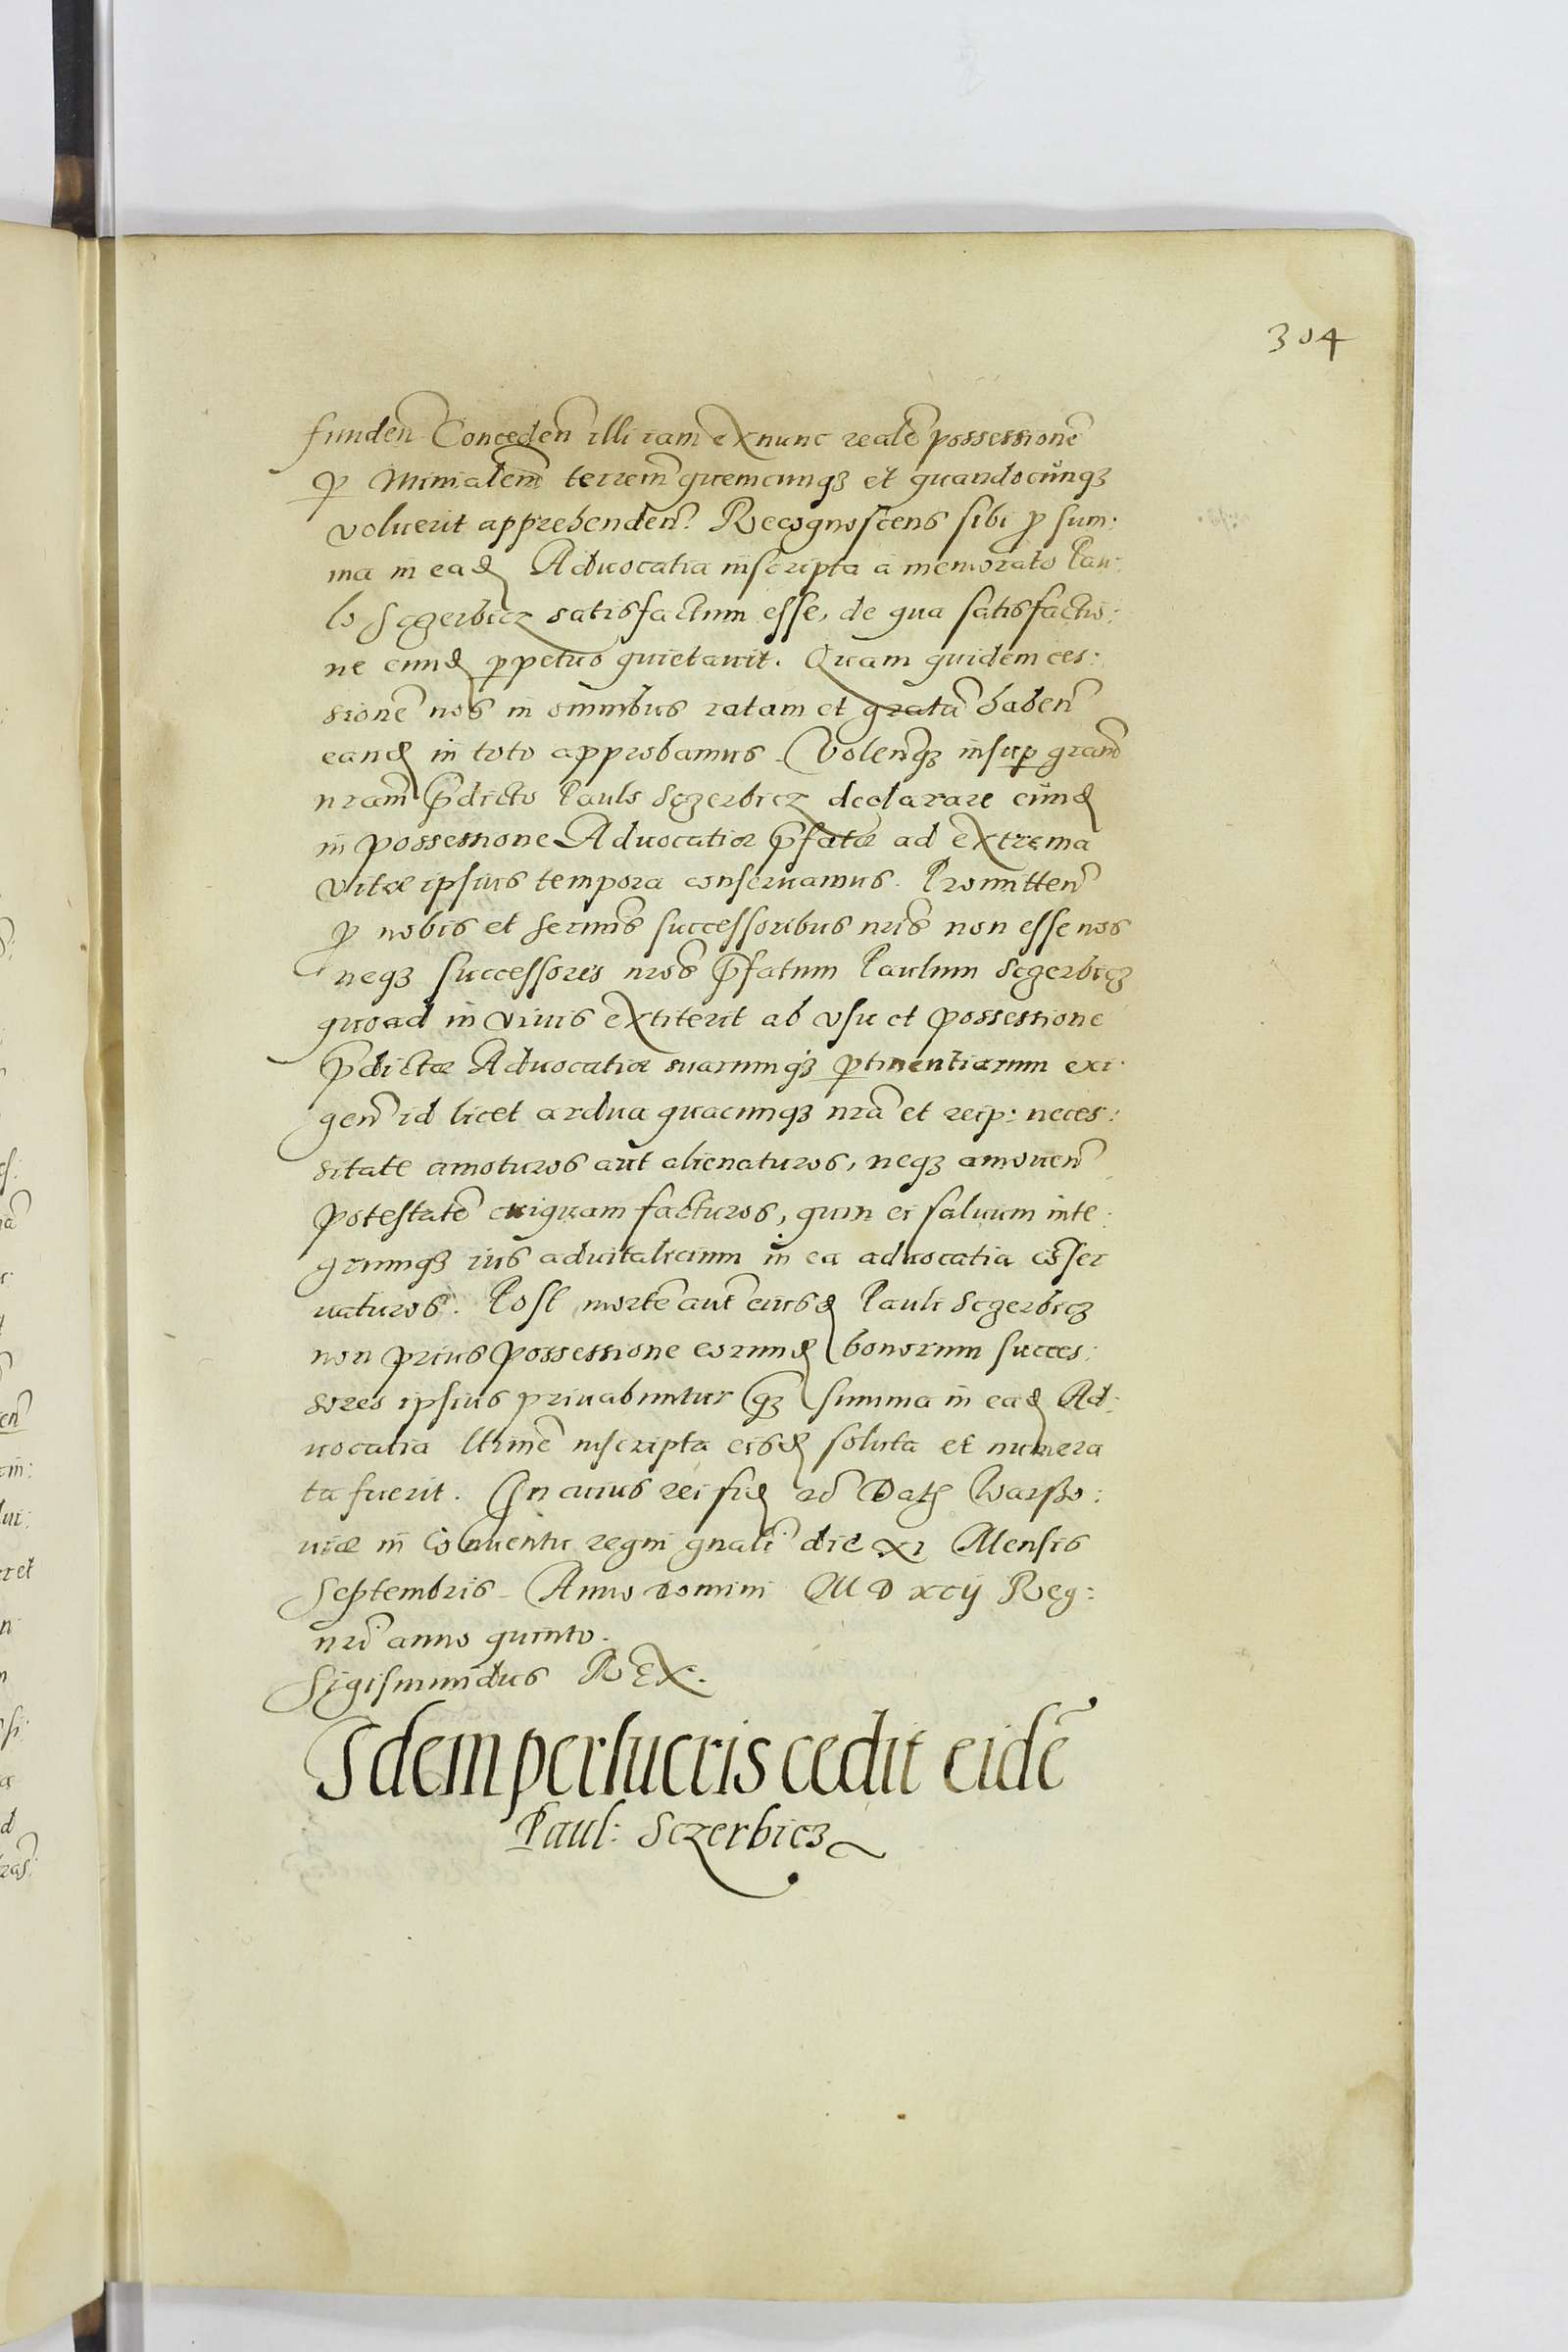 304
fundeñ Concedeñ illi iam ex nunc realē possessionē
p Minialem̃ terrem̃ quemcunqꝫ et quandocunqꝫ
voluerit apprehendeñ. Recognoscens sibi p sum:
ma in eadꝫ Advocatia inscripta a memorato Pau:
lo Sczerbicz satisfactum esse, de qua satisfactio:
ne eundꝫ ppetuo quietavit. Quam quidem ces:
sionē nos in omnibus ratam et gratā habeñ
eandꝫ in toto approbamus. Volenqꝫ insup gram̃
nram̃ p̃dicto Paulo Sczerbicz declarare eundꝫ
in possessione Advocatiæ p̃fatæ ad extrema
vitæ ipsius tempora conservamus. Promitteñ
p nobis et sermis̃ successoribus nris̃ non esse nos
neqꝫ successores nros̃ p̃fatum Paulum Sczerbicz
quoad in vivis extiterit ab usu et possessione
p̃dictæ Advocatiæ suarumqꝫ ptinentiarum exi:
geñ id licet ardua quacunqꝫ nrã et reip: neces:
sitate amoturos aut alienaturos, neqꝫ amoveñ
potestatē cuiquam facturos, quin ei salvum inte:
grumqꝫ ius advitalicium in ea advocatia cõser
vaturos. Post mortē aut̃ eiusdꝫ Pauli Sczerbicz
non prius possessione eorundꝫ bonorum succes:
sores ipsius privabuntur qꝫ summa in eadꝫ Ad:
vocatia ltrimē inscripta eisdꝫ soluta et numera
ta fuerit. In cuius rei fidꝫ rc̃ Datꝫ Warsso:
viæ in Conventu regni gnali die XI Mensis
Septembris Anno Domini M D xcij Reg:
nri anno quinto.
Sigismundus REX.
Idem perlucris cedit eidē
Paul: Sczerbicz